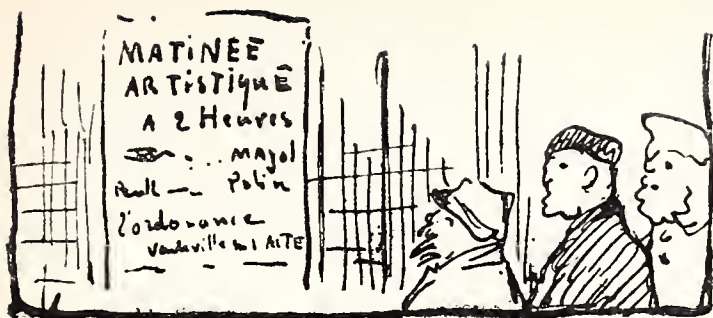 MATINEE
ARTISTIQUE
A 2 Heures
MAyol
Polin
l'ordonance
vaudeville en 1 ACTE